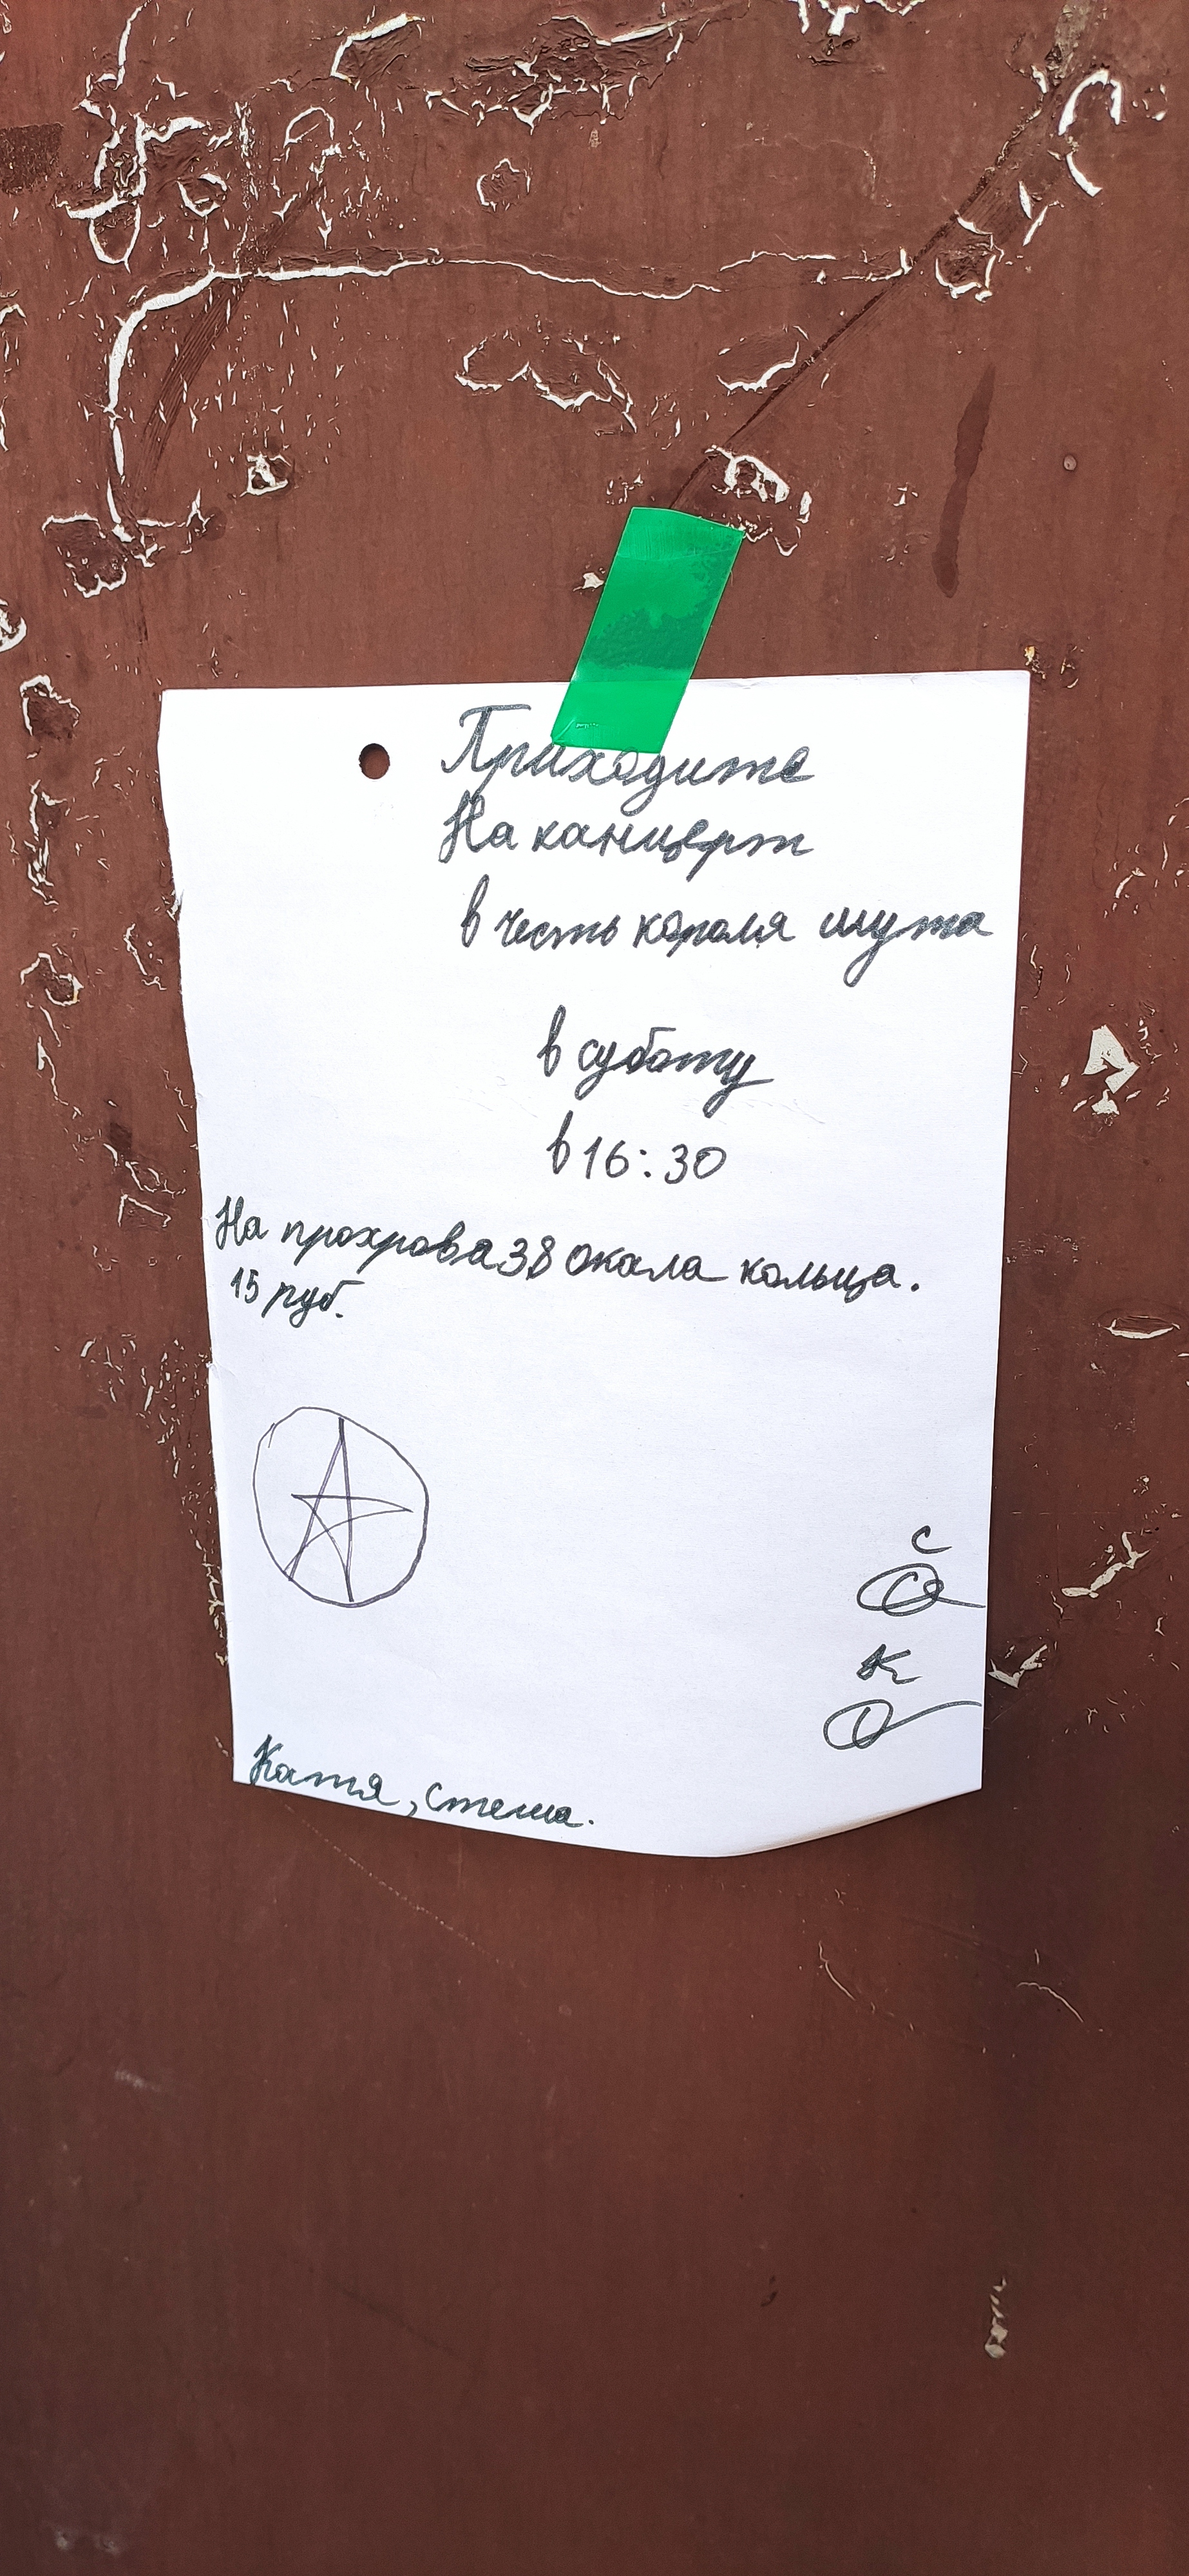 Приходите
На канцерт
в честь короля шута
в суботу
в 16:30
На прохрова 38 окала кольца.
15 руб.
с
к
Катя, стеша.